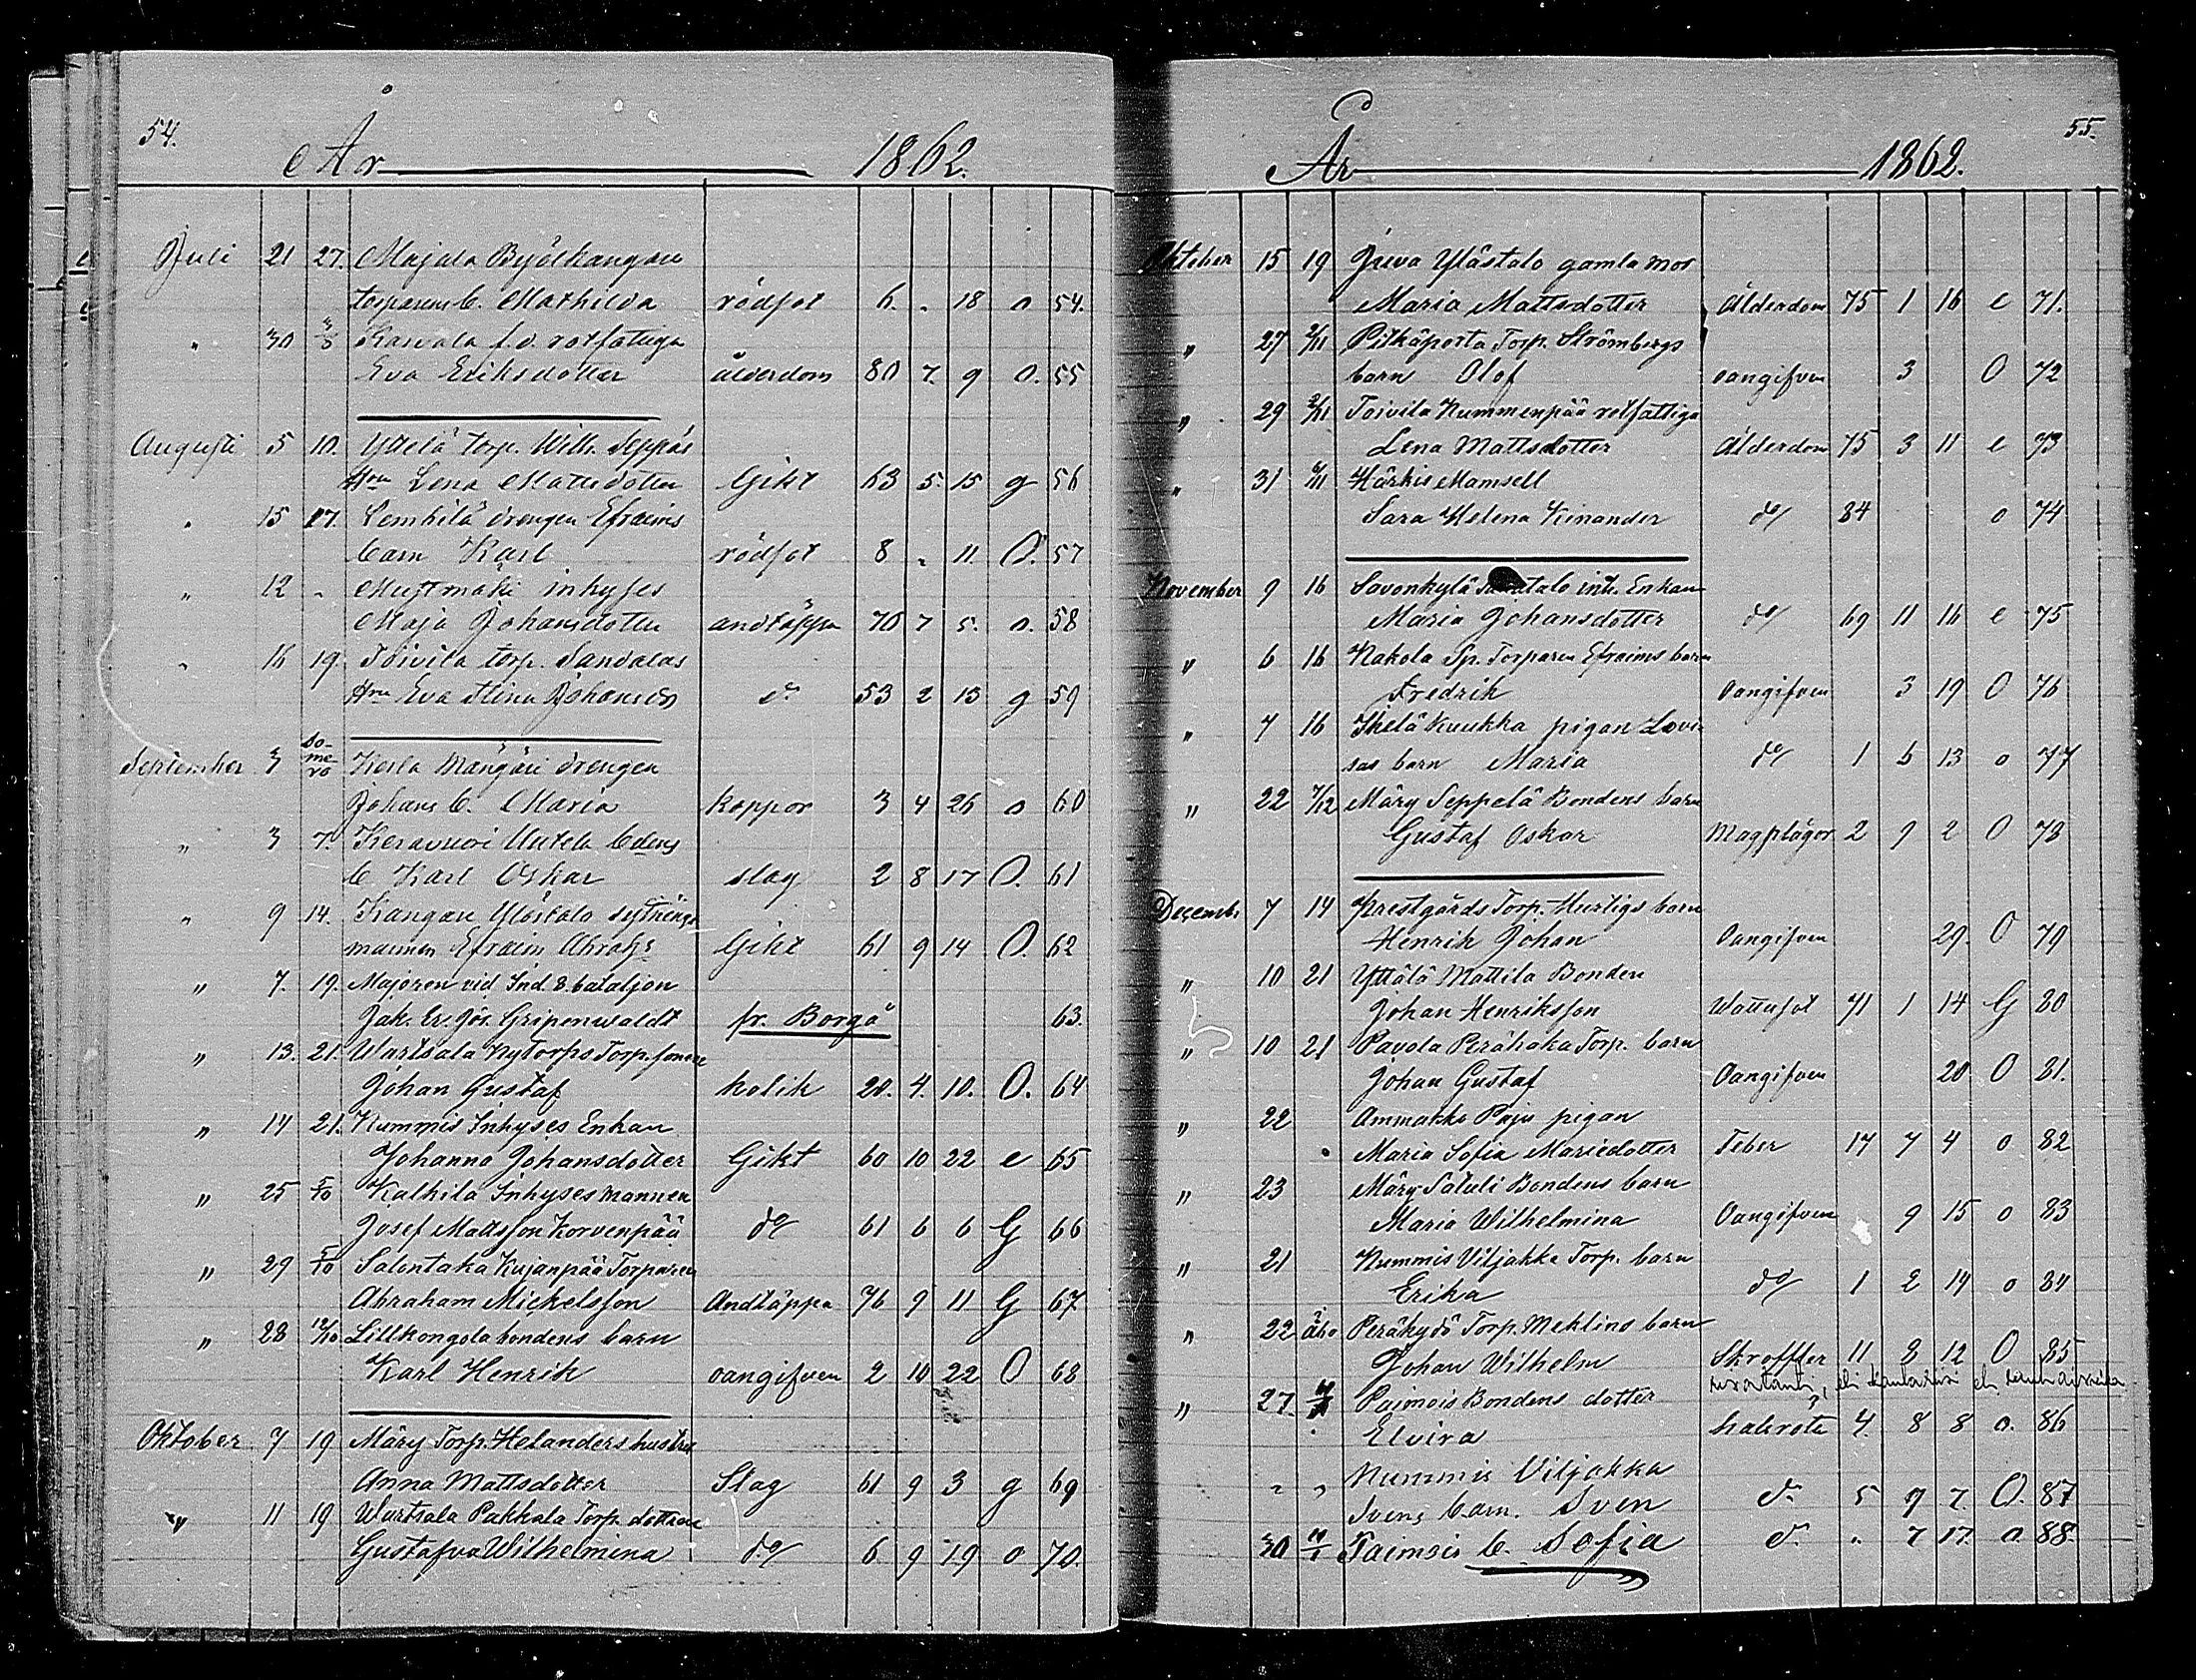 54.
År 1862.
Juli 21 27. Majala
torparens b. Mathilda rödsot 6. " 18 o 54.
" 30 3/8 f.d. rotfattiga
Eva Eriksdotter ålderdom 80 7. 9 O. 55
Augusti 5 10. Yttelä torp. Wilh. Seppäs
Hru Lena Mattsdotter Gikt 63 5. 15 g 56
" 15 17. drengen Efraims
barn Karl rödsot 8 " 11. O. 57
" 12 " inhyses
Maja Johansdotter andtäppa 70 7 5. o. 58
" 16 19. Toivila torp. Sandalas
Hru Eva Stina Johansd do 53 2 13 g 59
September 3 So-me-ro Kerla Mängäri drengen
Johans b. Maria koppor 3 4 26 o 60
" 3 7. Keravuori Uutela bdens
b. Karl Oskar slag 2 8 17 O. 61
" 9 14. Kangare Ylöstalo sytnings
mannen Efraim Abrahs Gikt 61 9 14 O. 62
" 7. 19. Majoren vid Ind. 8. bataljon
Jak. Er. Jör. Gripenwaldt fr. Borgå 63.
" 13. 21. Wartsala Nytorps Torp. sonen
Johan Gustaf kolik 20. 4. 10. O. 64
" 14 21. Nummis Inhyses Enkan
Johanna Johansdotter Gikt 60 10 22 e 65
" 25 5/10 Kalkila Inhysesmannen
Josef Mattsson Korvenpää do 61 6 6 G 66
" 29 5/10 Salontaka Kujanpää Torparen
Abraham Mickelsson Andtäppa 76 9 11 G 67
" 28 12/10 Lillkongola bondens barn
Karl Henrik oangifven 2 10 22 O 68
Oktober 7 19 Märy Torp. Helanders hustru
Anna Mattsdotter Slag 61 9 3 g 69
" 11 19 Wartsala Pakkala Torp. dottren
Gustafva Wilhelmina do 6 9 19 o 70.
55.
År 1862.
Oktober 15 19 Juva Ylöstalo gamla mor
Maria Mattsdotter Ålderdom 75 1 16 e 71.
" 27 2/11 Pitkäporta Torp. Strömbergs
barn Olof oangifven 3 O 72
" 29 2/11 Toivila Nummenpää rotfattiga
Lena Mattsdotter Ålderdom 75 3 11 e 73
" 31 Härkis Mamsell
Sara Helena Kinander do 84 o 74
November 9 16 Savonkylä inh. Enkan
Maria Johansdotter do 69 11 16 e 75
" 6 16 Nakola Sp. Torparen Efraims barn
Fredrik Oangifven 3 19 O 76
" 7 16 Ihelä Kuukka pigan Lovi-
sas barn Maria do 1 5 13 o 77
" 22 7/12 Märy Seppelä Bondens barn
Gustaf Oskar Magplågor 2 9 2 O 78
Decemb. 7 14 Prestgårds Torp. Hurtigs barn
Henrik Johan Oangifven 29. O 79
" 10 21 Yttälä Mattila Bonden
Johan Henriksson Wattusot 71 1 14 G 80
" 10 21 Pavola Perähaka Torp. barn
Johan Gustaf Oangifven 20 O 81.
" 22 Ammakko Paju pigan
Maria Sofia Mariedotter Feber 17 7 4 o 82
" 23 Märy Satuli Bondens barn
Maria Wilhelmina Oangifven 9 15 o 83
" 21 Nummis Viljakka Torp. barn
Erika do 1 2 14 o 84
" 22 Åbo Peräkydö Torp. Mehlins barn
Johan Wilhelm Skroffler 11 8 12 O 85
" 27. Paimois Bondens dotter
Elvira halsröta 4. 8 8 o. 86
" " Nummis Viljakka
Svens barn. Sven do 5 7 7. O. 87
30 Paimois b. Sofia do " 7 17. o. 88.